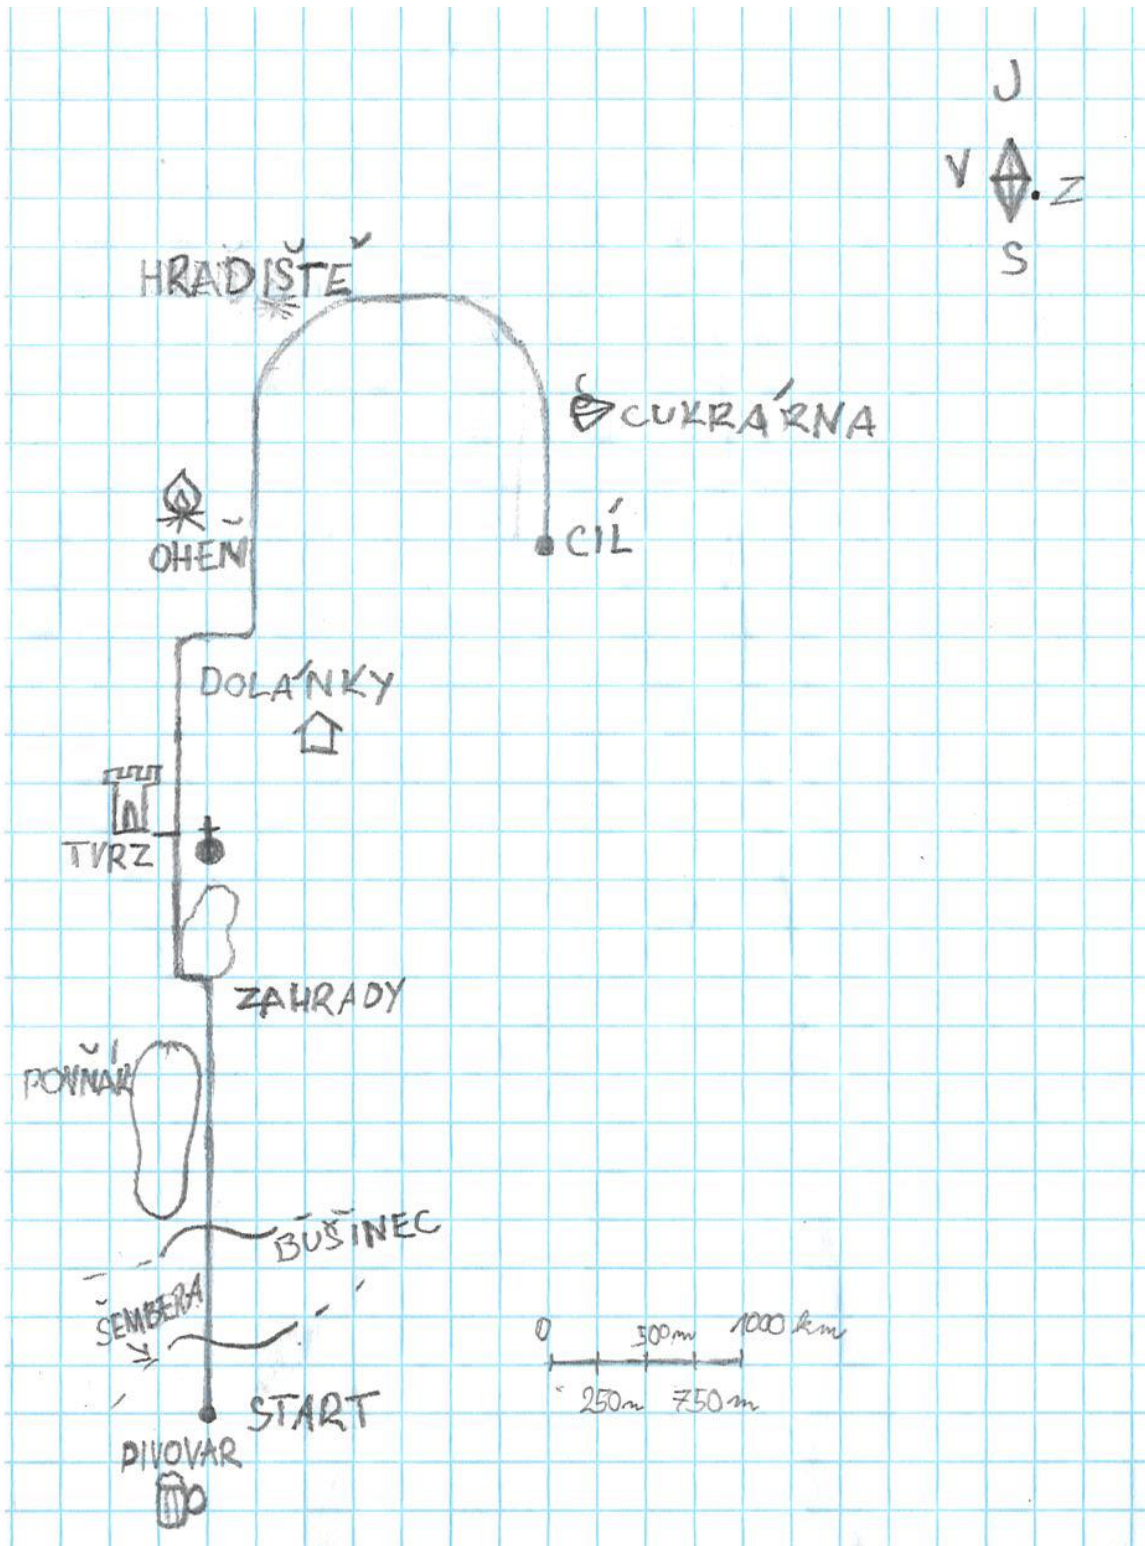 J
V
Z
S
HRADIŠTĚ
CUKRÁRNA
OHEŇ
CÍL
DOLÁNKY
TVRZ
ZAHRADY
POVŇÁK
BUŠINEC
ŠEMBERA
0 500m 1000 km
250m 750m
START
PIVOVAR